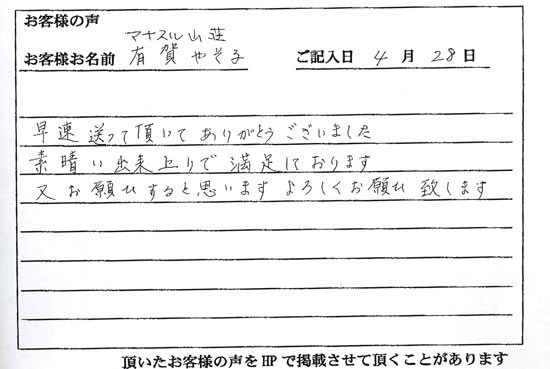 お客様の声
マナスル山荘
お客様お名前 有賀やそる ご記入日 4月28日
早速送って頂いてありがとうございました
素晴い出来上りで満足しております
又お願ひすると思います よろしくお願ひ致します
頂いたお客様の声をHPで掲載させて頂くことがあります